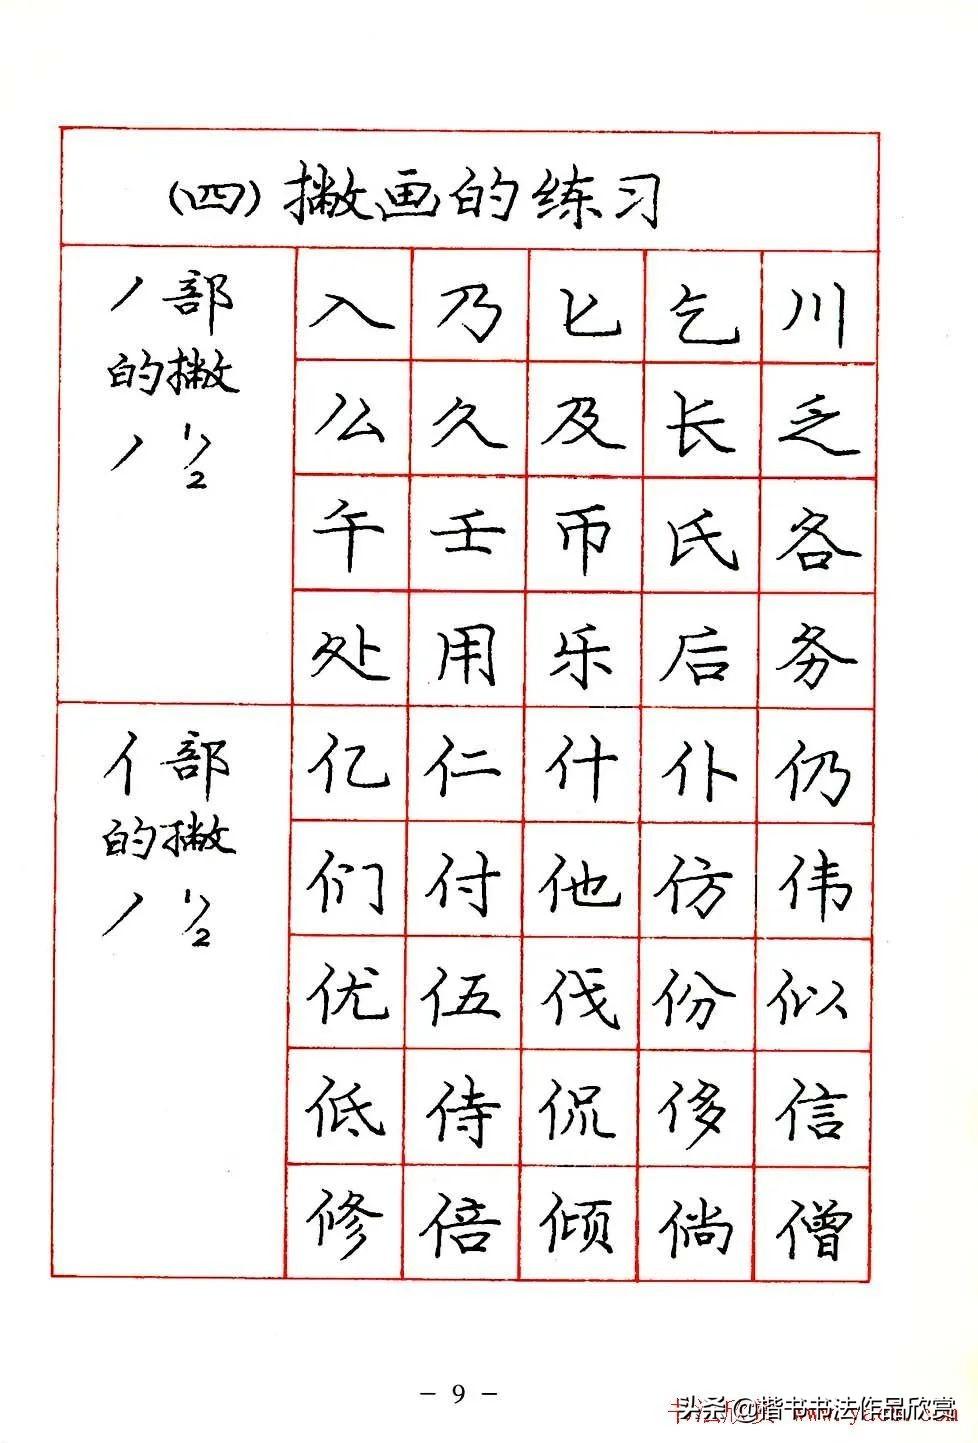 (四)撇画的练习
丿部
的撇
丿 1 2
入 乃 匕 乞 川
么 久 及 长 乏
午 壬 币 氏 各
处 用 乐 后 务
亻部
的撇
丿 1 2
亿 仁 什 仆 仍
们 付 他 仿 伟
优 伍 伐 份 似
低 侍 侃 侈 信
修 倍 倾 倘 僧
- 9 -
头条@楷书书法作品欣赏